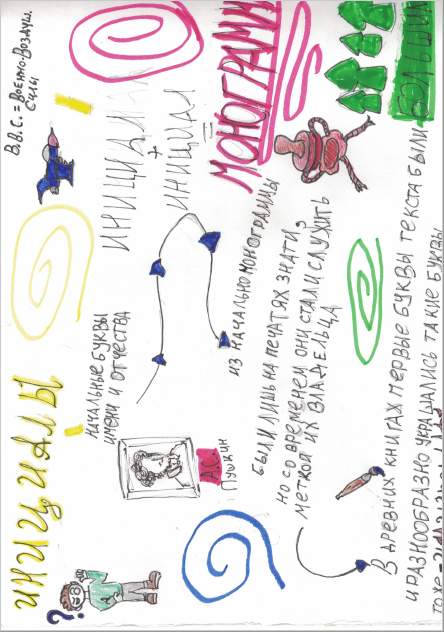 ИНИЦИАЛЫ
?
А
НАЧАЛЬНЫЕ БУКВЫ
ИМЕНИ И ОТЧЕСТВА
В.В.С. = ВОЕННО-ВОЗДУШ.
СИЛЫ
А.С.
ПУШКИН
ИНИЦИАЛ
+
ИНИЦИАЛ
=
МОНОГРАММ
ИЗНАЧАЛЬНО МОНОГРАММЫ
БЫЛИ ЛИШЬ НА ПЕЧАТЯХ ЗНАТИ,
НО СО ВРЕМЕНЕМ ОНИ СТАЛИ СЛУЖИТЬ
МЕТКОЙ ИХ ВЛАДЕЛЬЦА
В ДРЕВНИХ КНИГАХ ПЕРВЫЕ БУКВЫ ТЕКСТА БЫЛИ
БОЛЬШИМ
И РАЗНООБРАЗНО УКРАШАЛИСЬ ТАКИЕ БУКВЫ
ТОЖЕ